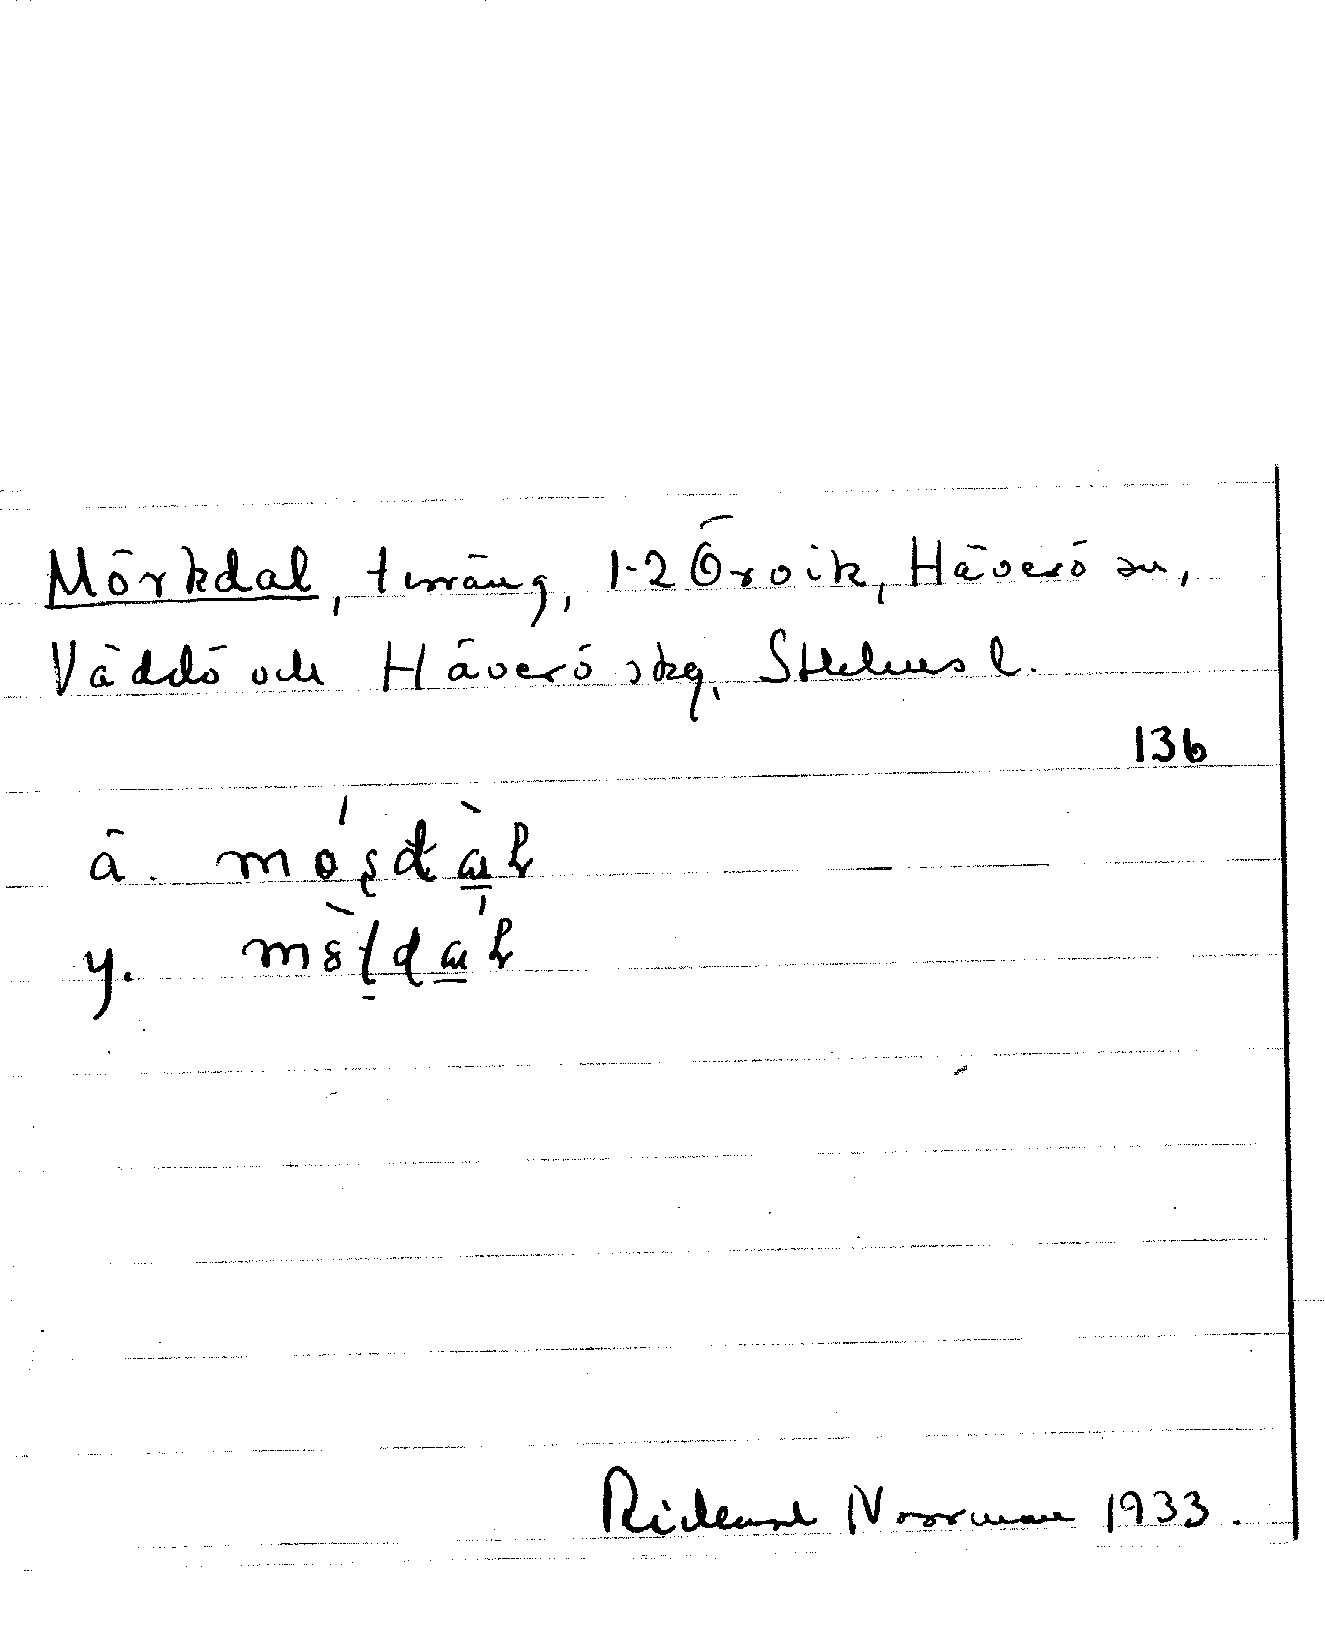 Mörkdal, terräng, 1-2 Örvik, Häverö sn,
Väddö och Häverö skg, Sthlms l.
136
ä.
y.
Rickard Norrman 1933.